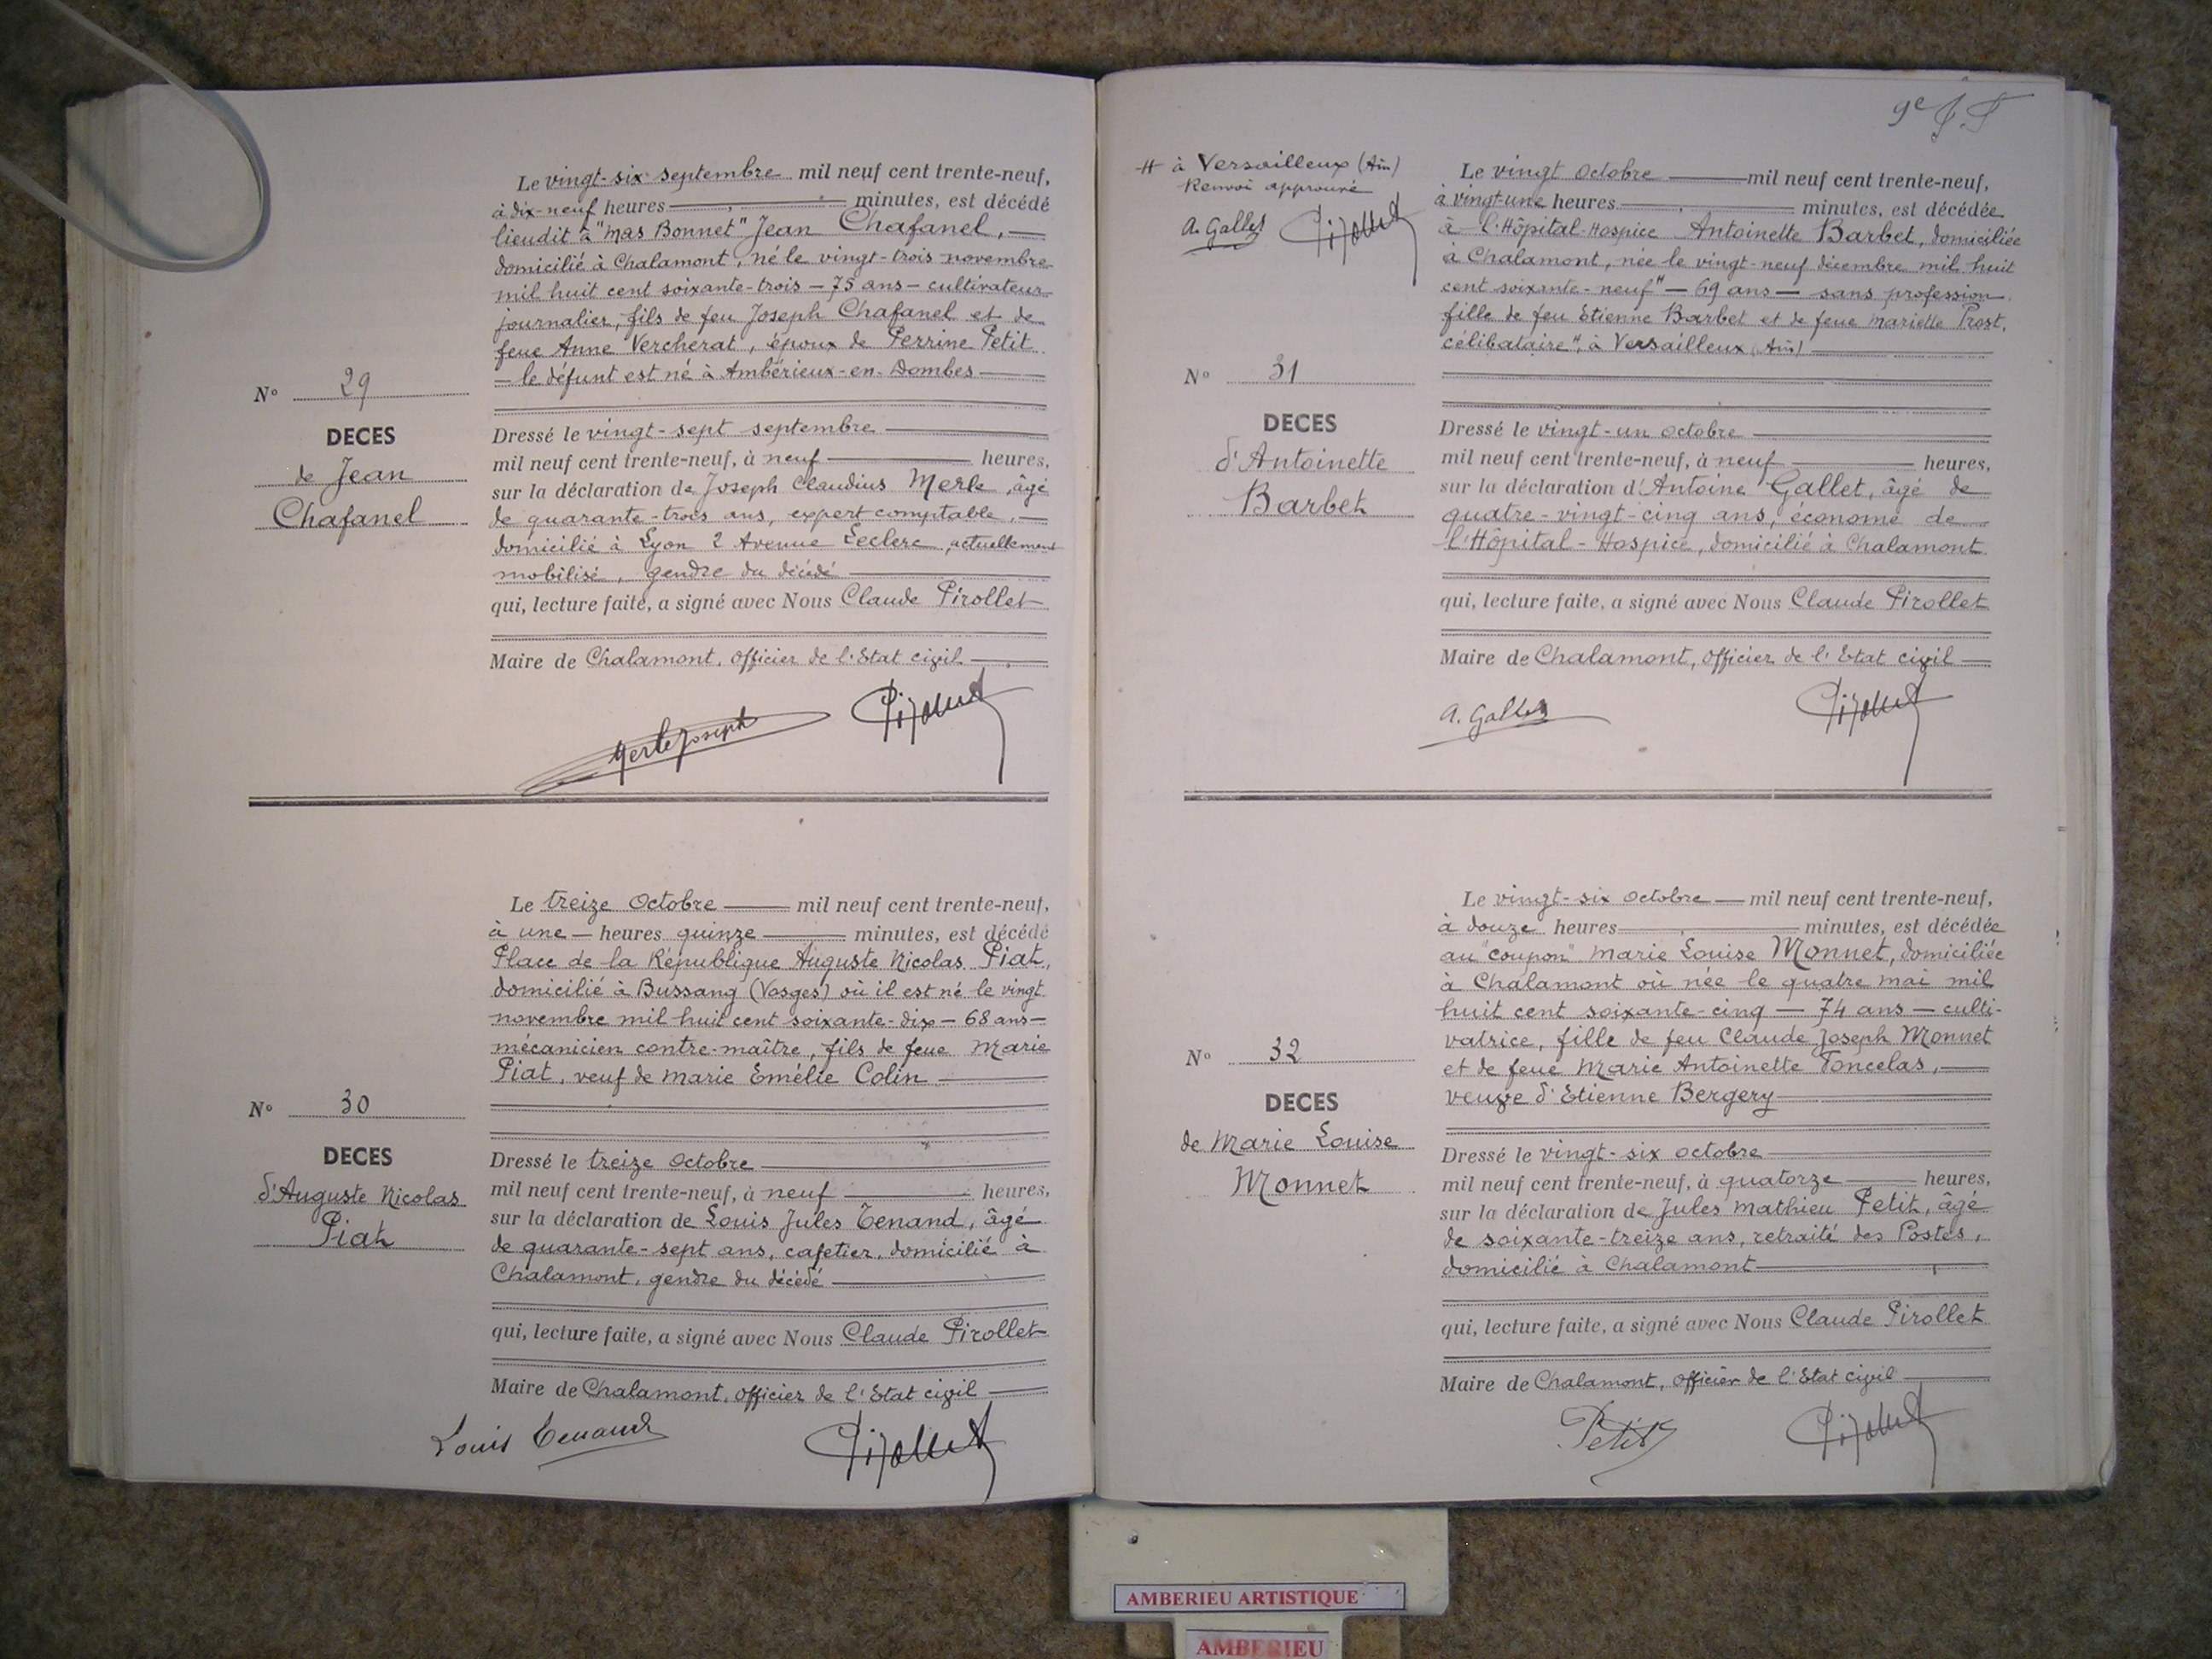 Le vingt-six septembre mil neuf cent trente-neuf,
à dix-neuf heures minutes, est décédé
lieudit à "Mas Bonnet" Jean Chafanel,
domicilié à Chalamont, né le vingt-trois novembre
mil huit cent soixante-trois – 75 ans – cultivateur
journalier, fils de feu Joseph Chafanel et de
feue Anne Vercherat, époux de Perrine Petit
– le défunt est né à Ambérieux-en-Dombes
N° 29
DECES
de Jean
Chafanel
Dressé le vingt-sept septembre
mil neuf cent trente-neuf, à neuf heures,
sur la déclaration de Joseph Claudius Merle, âgé
de quarante-trois ans, expert comptable,
domicilié à Lyon 2 Avenue Leclerc, actuellement
mobilisé, gendre du décédé
qui, lecture faite, a signé avec Nous Claude Pirollet
Maire de Chalamont, officier de l'Etat civil
Merle Joseph Pirollet
Le treize Octobre mil neuf cent trente-neuf,
à une – heures quinze minutes, est décédé
Place de la République Auguste Nicolas Piat,
domicilié à Bussang (Vosges) où il est né le vingt
novembre mil huit cent soixante-dix – 68 ans –
mécanicien contre-maître, fils de feue Marie
Piat, veuf de Marie Emélie Colin
N° 30
DECES
d'Auguste Nicolas
Piat
Dressé le treize Octobre
mil neuf cent trente-neuf, à neuf heures,
sur la déclaration de Louis Jules Tenand, âgé
de quarante-sept ans, cafetier, domicilié à
Chalamont, gendre du décédé
qui, lecture faite, a signé avec Nous Claude Pirollet
Maire de Chalamont, officier de l'Etat civil
Louis Tenand Pirollet
9e
à Versailleux (Ain)
Renvoi approuvé
A. Gallet Pirollet
Le vingt Octobre mil neuf cent trente-neuf,
à vingt-une heures minutes, est décédée
à l'Hôpital-Hospice Antoinette Barbet, domiciliée
à Chalamont, née le vingt-neuf décembre mil huit
cent soixante-neuf" – 69 ans – sans profession
fille de feu Etienne Barbet et de feue Mariette Prost,
célibataire", à Versailleux (Ain)
N° 31
DECES
d'Antoinette
Barbet
Dressé le vingt-un octobre
mil neuf cent trente-neuf, à neuf heures,
sur la déclaration d'Antoine Gallet, âgé de
quatre-vingt-cinq ans, économe de
l'Hôpital-Hospice, domicilié à Chalamont
qui, lecture faite, a signé avec Nous Claude Pirollet
Maire de Chalamont, officier de l'Etat civil
A. Gallet Pirollet
Le vingt-six octobre – mil neuf cent trente-neuf,
à douze heures minutes, est décédée
au "Coupon" Marie Louise Monnet, domiciliée
à Chalamont où née le quatre mai mil
huit cent soixante-cinq – 74 ans – culti-
vatrice, fille de feu Claude Joseph Monnet
et de feue Marie Antoinette Foncelas,
veuve d'Etienne Bergery
N° 32
DECES
de Marie Louise
Monnet
Dressé le vingt-six octobre
mil neuf cent trente-neuf, à quatorze heures,
sur la déclaration de Jules Mathieu Petit, âgé
de soixante-treize ans, retraité des Postes,
domicilié à Chalamont
qui, lecture faite, a signé avec Nous Claude Pirollet
Maire de Chalamont, officier de l'Etat civil
Petit Pirollet
AMBERIEU ARTISTIQUE
AMBERIEU